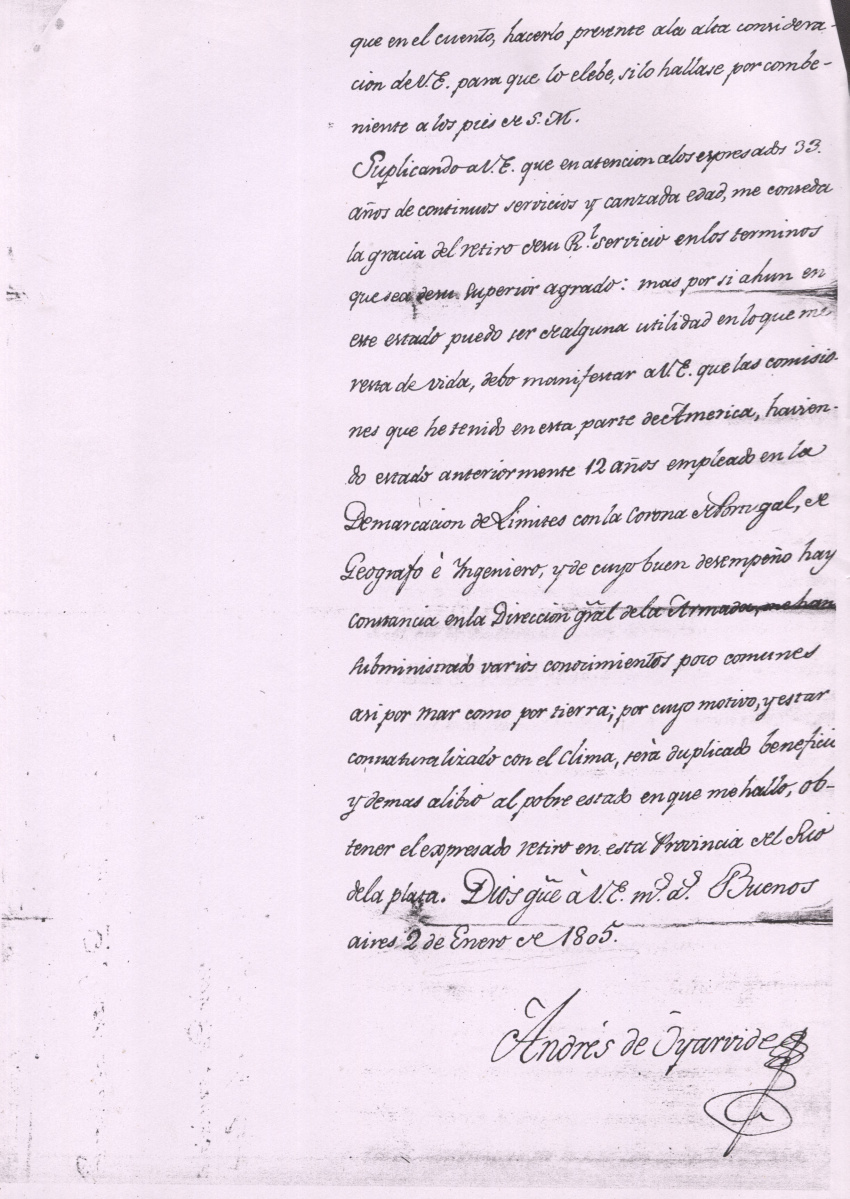 que en el cuento, hacerlo presente ala alta considera-
cion de V.E. para que lo elebe, si lo hallase por combe-
niente a los pies de S. M.
Suplicando a V.E. que en atencion alos expresados 33.
años de continuos servicios y canzada edad, me conseda
la gracia del retiro desu R.l servicio en los terminos
que sea desu superior agrado: mas por si ahun en
este estado puedo ser de alguna utilidad en lo que me
resta de vida, debo manifestar a V.E. que las comisio-
nes que he tenido en esta parte de America, havien-
do estado anteriormente 12 años empleado en la
Demarcacion de Limites con la Corona de Portugal, de
Geografo è Ingeniero, y de cuyo buen desempeño hay
constancia en la Direccion gr̃al de la Armada, me han
subministrado varios conocimientos poco comunes
asi por Mar como por tierra; por cuyo motivo, y estar
connaturalizado con el Clima, serà duplicado benefici
y demas alibio al pobre estado en que me hallo, ob-
tener el expresado retiro en esta Provincia del Rio
dela plata. Dios gũe à V.E. m.s a.s Buenos
aires 2 de Enero de 1805.
Andrés de Oyarvide